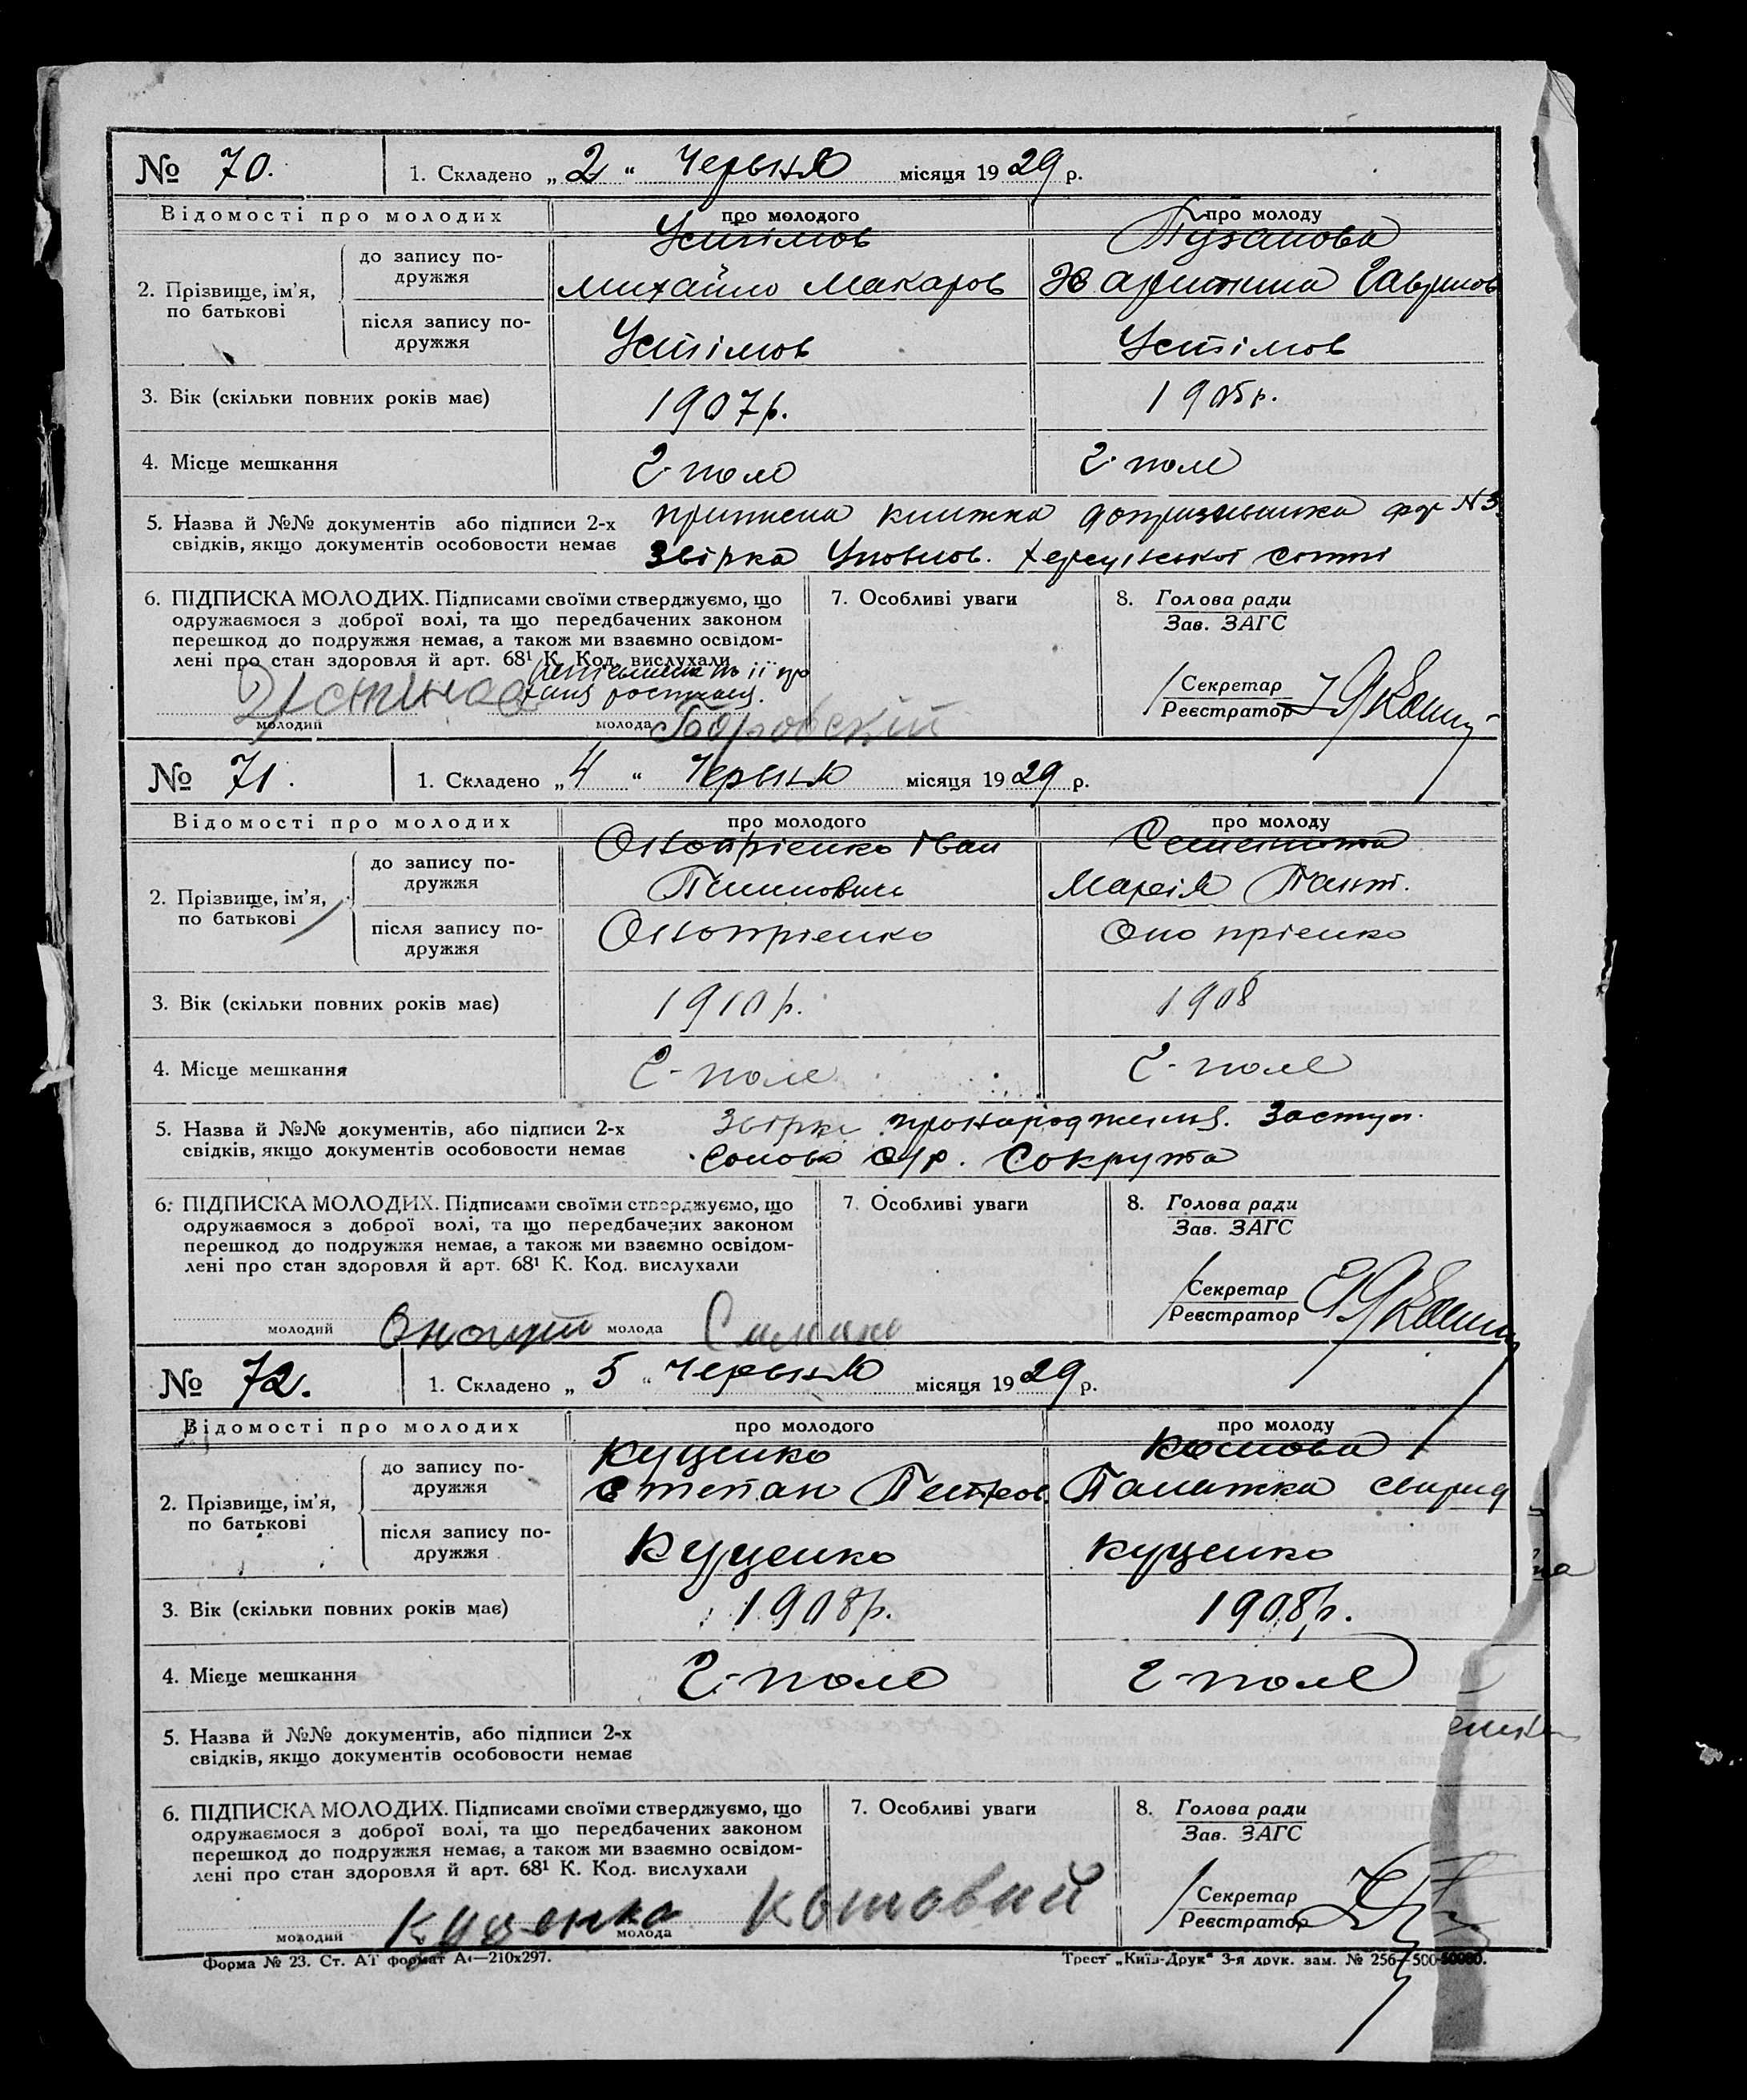 № 70. 1. Складено „2“ Червня місяця 1929 р.
Відомості про молодих про молодого про молоду
2. Прізвище, ім’я, по батькові
до запису подружжя
Устімов
Михайло Макаров
Пузанова
Харитина Гаврилов
після запису по-
дружжя
Устімов Устімов
3. Вік (скільки повних років має) 1907р. 1905р.
4. Місце мешкання Г-поле Г-поле
5. Назва й №№ документів або підписи 2-х
свідків, якщо документів особовости немає
приписна книжка допризивника №3.
Звірка Уповнов. сотні
6. ПІДПИСКА МОЛОДИХ. Підписами своїми стверджуємо, що
одружаємося з доброї волі, та що передбачених законом
перешкод до подружжя немає, а також ми взаємно освідом-
лені про стан здоровля й арт. 68¹ К. Код. вислухали
молодий молода Боровский
7. Особливі уваги
8. Голова ради
Зав. ЗАГС
Секретар
Реєстратор
№ 71. 1. Складено „4“ Червня місяця 1929 р.
Відомості про молодих про молодого про молоду
2. Прізвище, ім’я,
по батькові
до запису по-
дружжя
Онопрієнко Іван
Семенюта
Марсія Пант.
після запису по-
дружжя
Онопрієнко Онопрієнко
3. Вік (скільки повних років має) 1910р. 1908
4. Місце мешкання Г-поле Г-поле
5. Назва й №№ документів, або підписи 2-х
свідків, якщо документів особовости немає
Звірка про народження. Заступ.
Голова с/р. Сокрута
6. ПІДПИСКА МОЛОДИХ. Підписами своїми стверджуємо, що
одружаємося з доброї волі, та що передбачених законом
перешкод до подружжя немає, а також ми взаємно освідом-
лені про стан здоровля й арт. 68¹ К. Код. вислухали
молодий молода
7. Особливі уваги
8. Голова ради
Зав. ЗАГС
Секретар
Реєстратор
№ 72. 1. Складено „5“ Червня місяця 1929 р.
Відомості про молодих про молодого про молоду
2. Прізвище, ім’я,
по батькові
до запису по-
дружжя
Куценко
Степан Петров.
Котова
Палажка Свирид
після запису по-
дружжя
Куценко Куценко
3. Вік (скільки повних років має) 1908р. 1908р.
4. Місце мешкання Г-поле Г-поле
5. Назва й №№ документів, або підписи 2-х
свідків, якщо документів особовости немає
6. ПІДПИСКА МОЛОДИХ. Підписами своїми стверджуємо, що
одружаємося з доброї волі, та що передбачених законом
перешкод до подружжя немає, а також ми взаємно освідом-
лені про стан здоровля й арт. 68¹ К. Код. вислухали
молодий Куценко молода Котовий
7. Особливі уваги
8. Голова ради
Зав. ЗАГС
Секретар
Реєстратор
Форма № 23. Ст. АТ формат А₄—210х297. Трест „Київ-Друк“ 3-я друк. зам. № 256—500-50000.